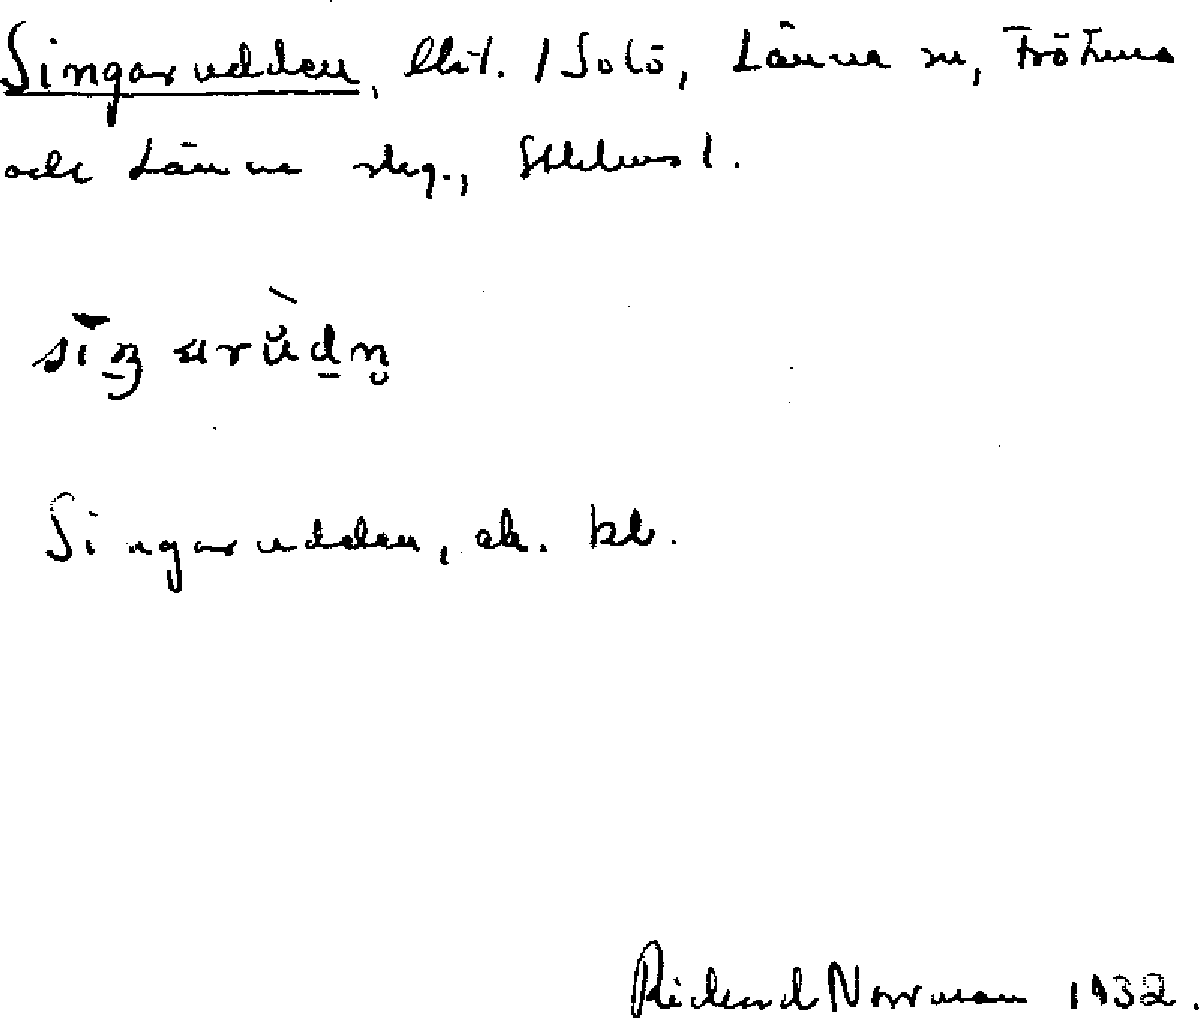 Singarudden, lht. / Solö, Länna sn, Frötuna
och Länna skg., Sthlms l.
sìŋ arùdṇ
Singarudden, ek. bl.
Rickard Norrman 1932.